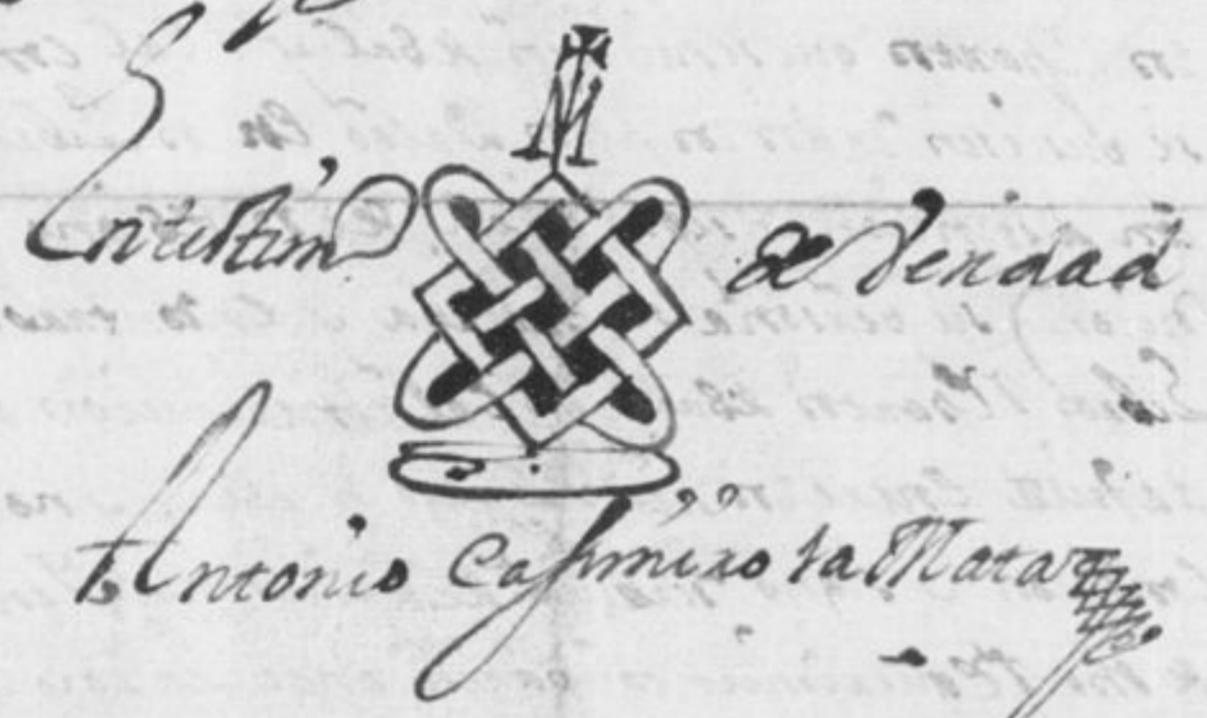 M
En testimo de Verdad
Antonio Casimiro ra Mata